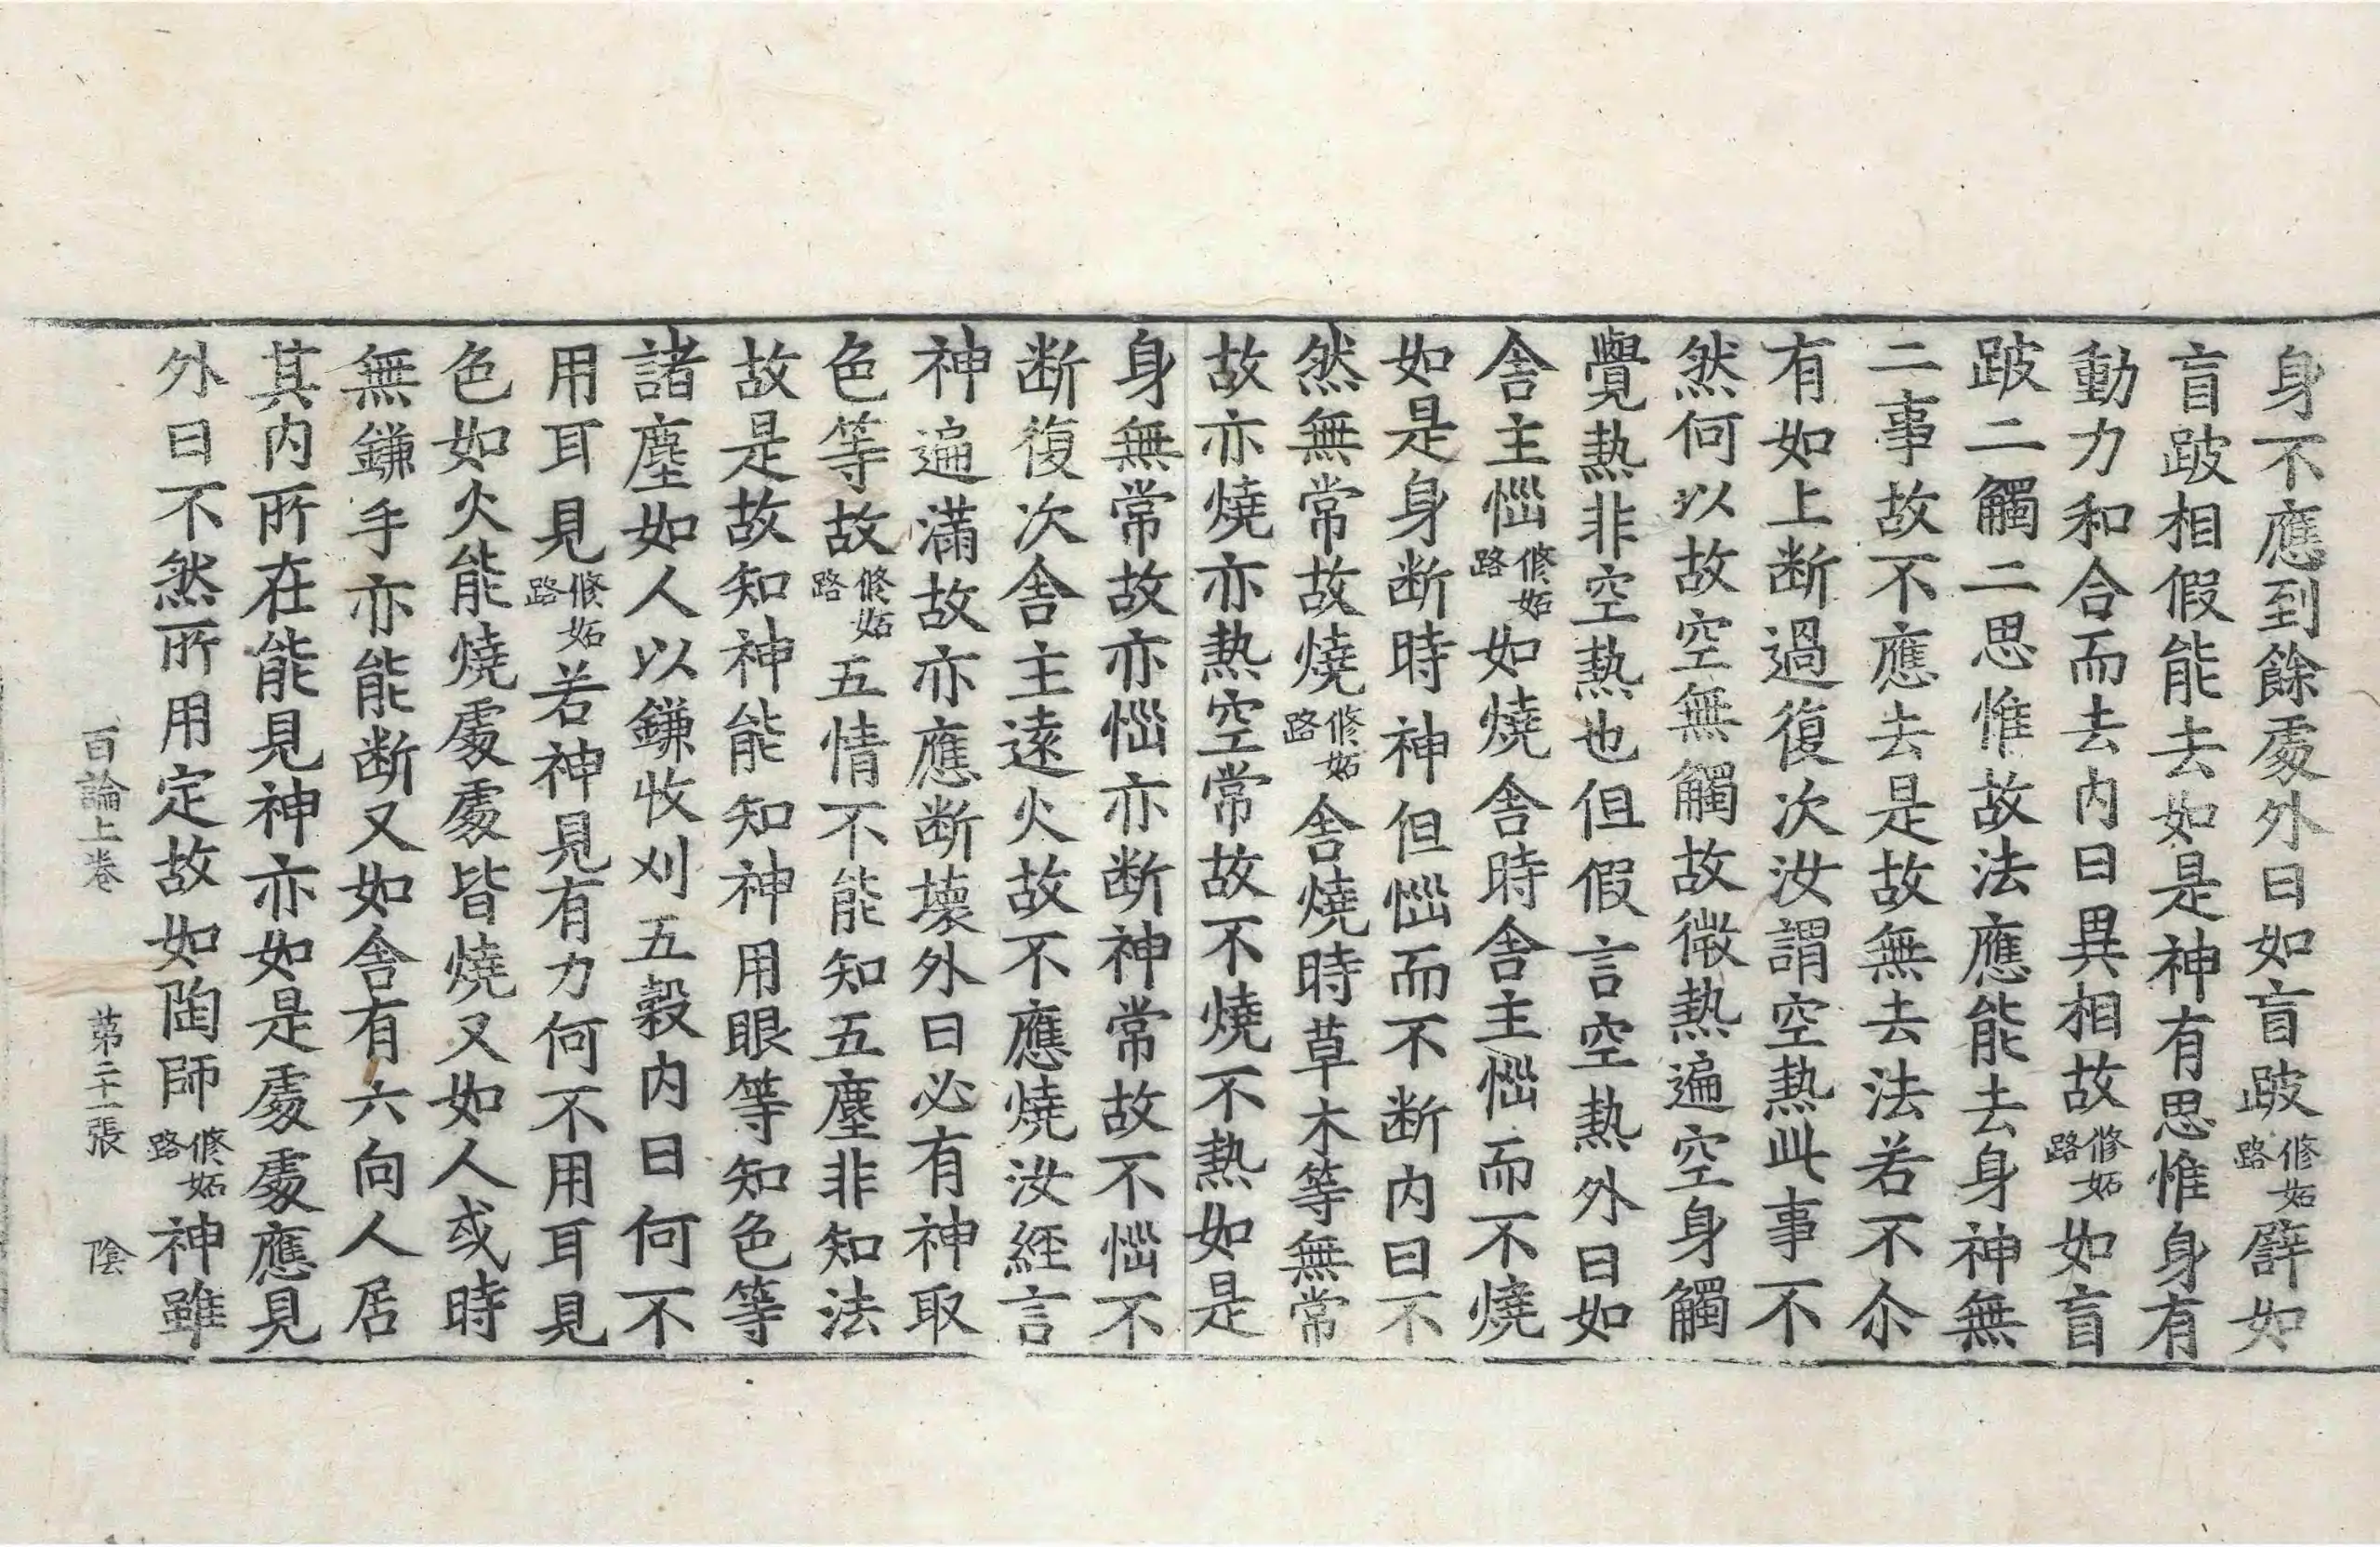 身不應到餘處外曰如盲跛修妬路譬如
盲跛相假能去如是神有思惟身有
動力和合而去内曰異相故修妬路如盲
跛二觸二思惟故法應能去身神無
二事故不應去是故無去法若不尒
有如上断過復次汝謂空熱此事不
然何以故空無觸故微熱遍空身觸
覺熱非空熱也但假言空熱外曰如
舍主惱修妬路如燒舍時舍主惱而不燒
如是身断時神但惱而不断内曰不
然無常故燒修妬路舍燒時草木等無常
故亦燒亦熱空常故不燒不熱如是
身無常故亦惱亦断神常故不惱不
断復次舍主遠火故不應燒汝経言
神遍滿故亦應断壞外曰必有神取
色等故修妬路五情不能知五塵非知法
故是故知神能知神用眼等知色等
諸塵如人以鎌收刈五穀内曰何不
用耳見修妬路若神見有力何不用耳見
色如火能燒處處皆燒又如人或時
無鎌手亦能断又如舍有六向人居
其内所在能見神亦如是處處應見
外曰不然所用定故如陶師修妬路神雖
百論上卷 第二十一張 陰